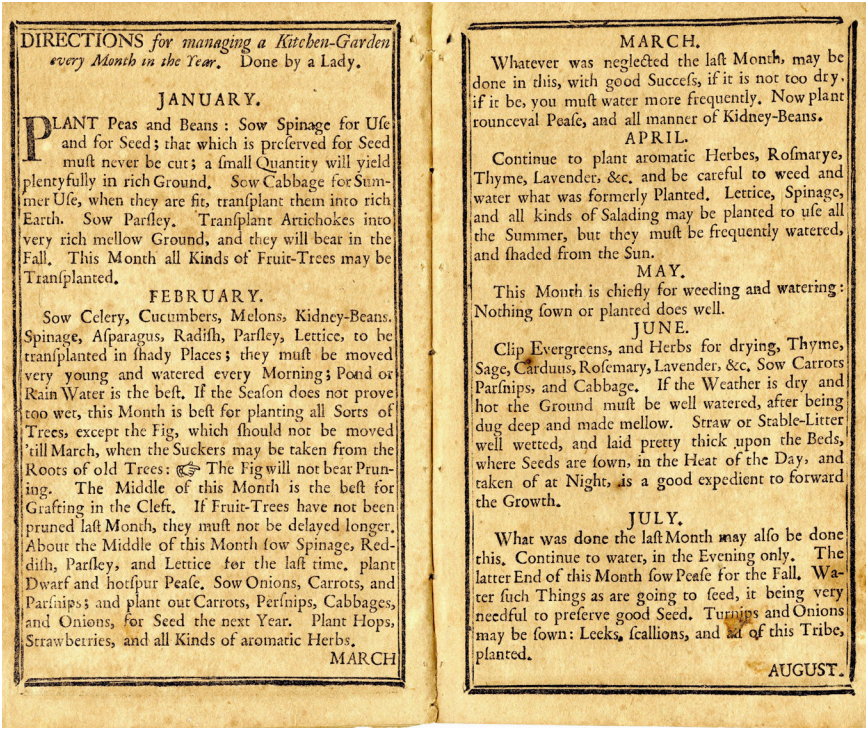 DIRECTIONS for managing a Kitchen-Garden
every Month in the Year. Done by a Lady.
JANUARY.
PLANT Peas and Beans : Sow Spinage for Uſe
and for Seed ; that which is preſerved for Seed
muſt never be cut ; a ſmall Quantity will yield
plentyfully in rich Ground. Sow Cabbage for Sum-
mer Uſe, when they are fit, tranſplant them into rich
Earth. Sow Parſley. Tranſplant Artichokes into
very rich mellow Ground, and they will bear in the
Fall. This Month all Kinds of Fruit-Trees may be
Tranſplanted.
FEBRUARY.
Sow Celery, Cucumbers, Melons, Kidney-Beans.
Spinage, Aſparagus, Radiſh, Parſley, Lettice, to be
tranſplanted in ſhady Places ; they muſt be moved
very young and watered every Morning ; Pond or
Rain Water is the beſt. If the Seaſon does not prove
too wet, this Month is beſt for planting all Sorts of
Trees, except the Fig, which ſhould not be moved
'till March, when the Suckers may be taken from the
Roots of old Trees : ☞ The Fig will not bear Prun-
ing. The Middle of this Month is the beſt for
Grafting in the Cleft. If Fruit-Trees have not been
pruned laſt Month, they muſt not be delayed longer.
About the Middle of this Month ſow Spinage, Red-
diſh, Parſley, and Lettice for the laſt time. plant
Dwarf and hotſpur Peaſe. Sow Onions, Carrots, and
Parſnips ; and plant out Carrots, Perſnips, Cabbages,
and Onions, for Seed the next Year. Plant Hops,
Strawberries, and all Kinds of aromatic Herbs.
MARCH
MARCH.
Whatever was neglected the laſt Month, may be
done in this, with good Succeſs, if it is not too dry,
if it be, you muſt water more frequently. Now plant
rounceval Peaſe, and all manner of Kidney-Beans.
APRIL.
Continue to plant aromatic Herbes, Roſmarye,
Thyme, Lavender, &c. and be careful to weed and
water what was formerly Planted. Lettice, Spinage,
and all kinds of Salading may be planted to uſe all
the Summer, but they muſt be frequently watered,
and ſhaded from the Sun.
MAY.
This Month is chiefly for weeding and watering :
Nothing ſown or planted does well.
JUNE.
Clip Evergreens, and Herbs for drying, Thyme,
Sage, Carduus, Roſemary, Lavender, &c. Sow Carrots
Parſnips, and Cabbage. If the Weather is dry and
hot the Ground muſt be well watered, after being
dug deep and made mellow. Straw or Stable-Litter
well wetted, and laid pretty thick upon the Beds,
where Seeds are ſown, in the Heat of the Day, and
taken of at Night, is a good expedient to forward
the Growth.
JULY.
What was done the laſt Month may alſo be done
this. Continue to water, in the Evening only. The
latter End of this Month ſow Peaſe for the Fall. Wa-
ter ſuch Things as are going to ſeed, it being very
needful to preſerve good Seed. Turnips and Onions
may be ſown : Leeks, ſcallions, and all of this Tribe,
planted.
AUGUST.